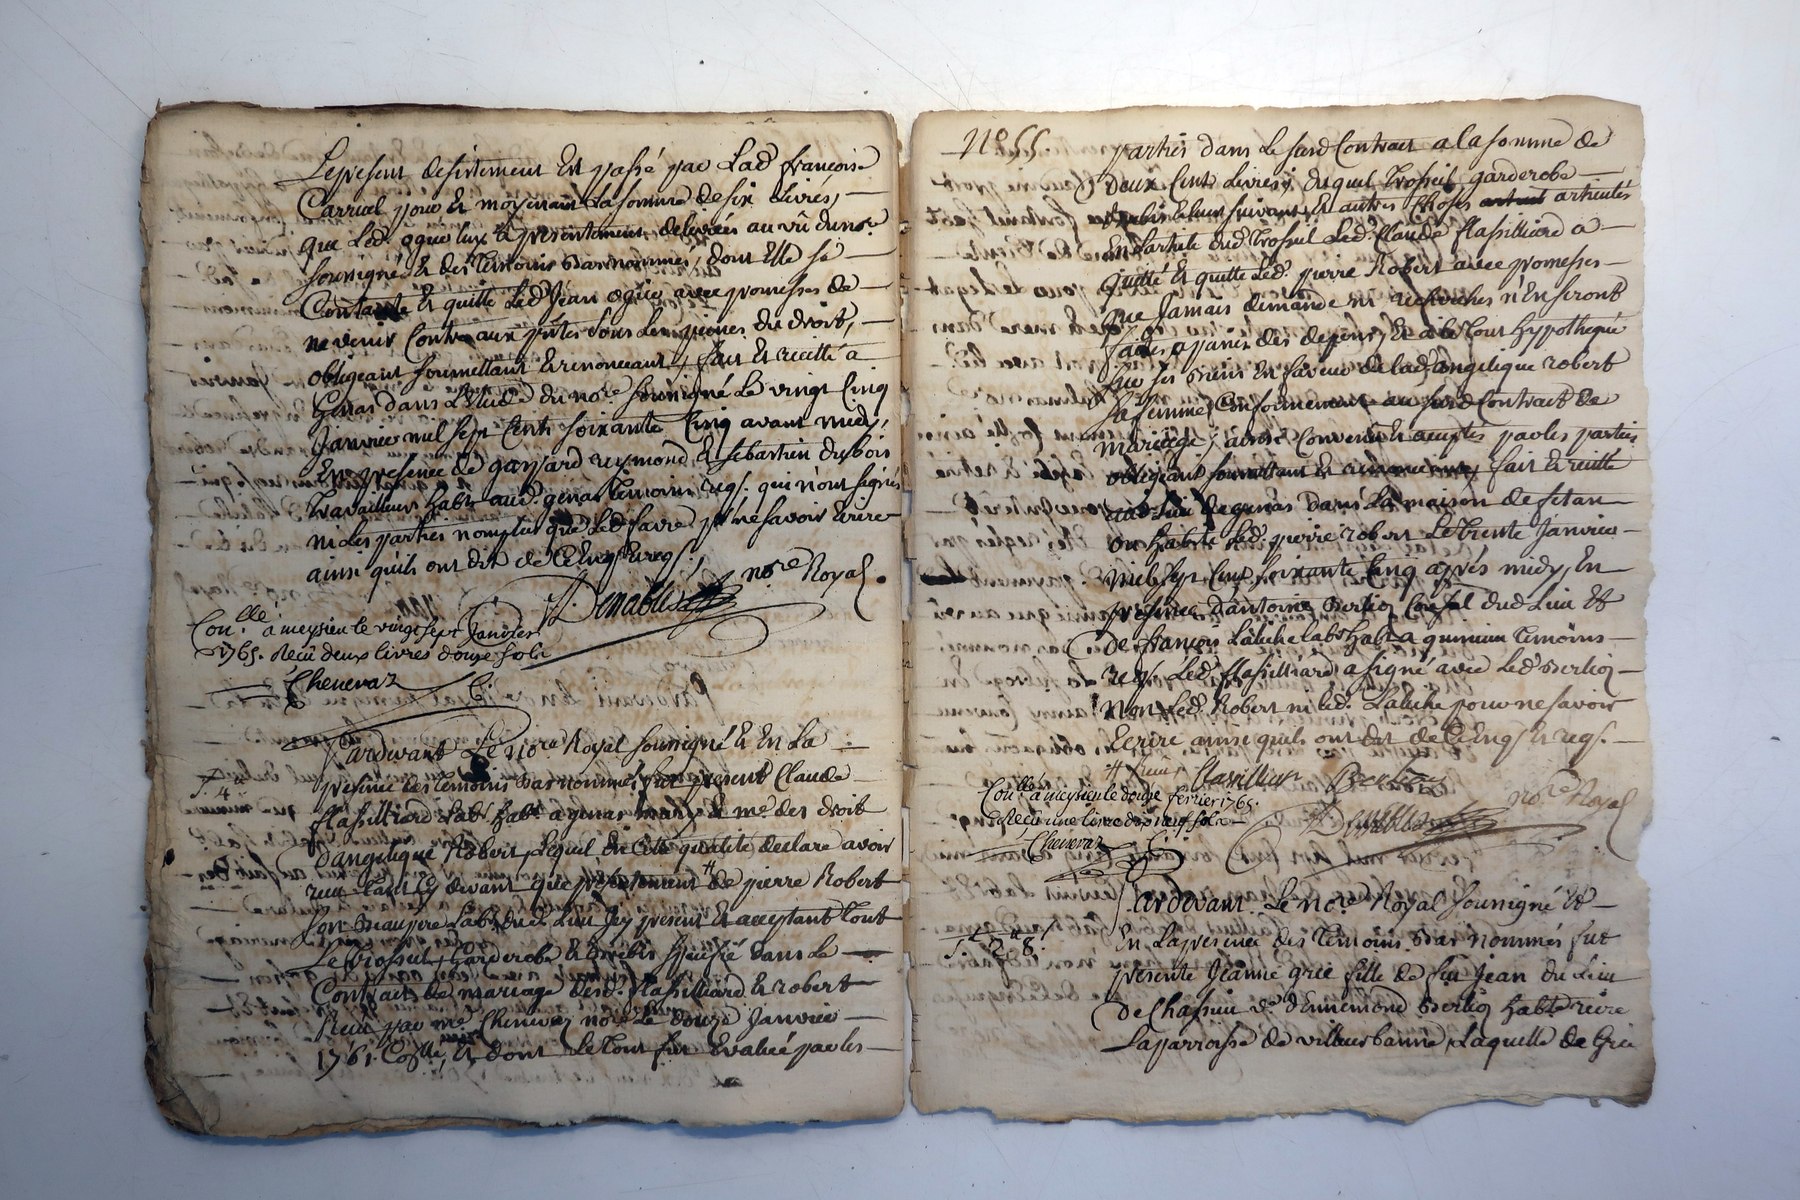 Le present desistement Est passé par Lad françoise
Carrual pour & moyenant La somme de six Livres,
que Led. oguex luy a presentement delivrés au vû du no.re
soussigné & des Temoins Bas nommes, dont Elle sé
Contante & quitte Led Jean oguex avec promesses de
ne venir Contre aux ptes sous Les peines du droit,
obligeant soumettant & renonceant, fait & recitté a
Genas dans L'Etude du no.re soussigné Le vingt Cinq
Janvier mil sept Cents soixante Cinq avant midy,
En presence de gaspard reymond & sebastien dubois
Travailleurs habts aud. genas Temoins reqs. qui n'ont signés
ni Les parties nomplus que Led favre pr ne savoir Ecrire
ainsi qu'ils ont dit de ce Enqs & reqs.,
no.re Royal.
Con.llé à meysieu le vingt sept Janvier
1765. Recû deux livres douze sols
Chenevaz
Pardevant Le no.re Royal soussigné & En La
presence des temoins Bas nommés fut present Claude
flassilliard Lab.r hab.t a genas mary & m.e des droit
d'angelique Robert, Lequel En Cette qualité declare avoir
reçu tant cy devant que presentement de pierre Robert
son Beaupere Lab.r dud. Lieu Icy present & acceptant tout
Le trossel, garderobe & Brebis specifié dans Le
Contrait de mariage desd. flassilliard & robert
Recu par m.e Chenevaz no.re Le douze Janvier
1761. Con.llé, & dont Le tout fut Evalué par les
N° 55.
parties dans Le susd Contrait a la somme de
Deux Cent Livres, duquel trossel garderobe
Brebis & Leur suivant, & autres choses articulés
En Larticle dud trossel Led. Claude flassilliard a
quitté & quitte Led. pierre Robert avec promesses
que Jamais demande ni recherches n'En seront
faites a paines des depens, & a le tout hypothequé
sur ses Biens En faveur de lad angelique robert
sa femme, Conformement au susd Contrait de
mariage; ainsi Convenu & accepté par les parties
obligeant soumettant & renonceant, fait & recitté
aud Lieu de genas Dans La maison de fetan
ou habite Led. pierre robert Le trente Janvier
mil sept Cent soixante Cinq après midy, En
presence d'antoine Berlioz Consul dud Lieu &
de françois Laluche lab.r hab.t a Temoins
reqs. Led. flassilliard a signé avec Led Berlioz
non Led. Robert ni Led. Laluche pour ne savoir
Ecrire ainsi quils ont dit de ce Enqs & reqs.
flassillier Berlioz
no.re Royal
Con.llé à meysieu le douze fevrier 1765.
Recû une livre dix neuf sols
Chenevaz
Pardevant Le no.re Royal soussigné &
En La presence des Temoins Bas nommés fut
presente Jeanne grie fille de feu Jean du Lieu
De Chassieu v.e d'Ennemond Berlioz habt.e riere
La parroisse de villeurbanne, Laquelle de Gré